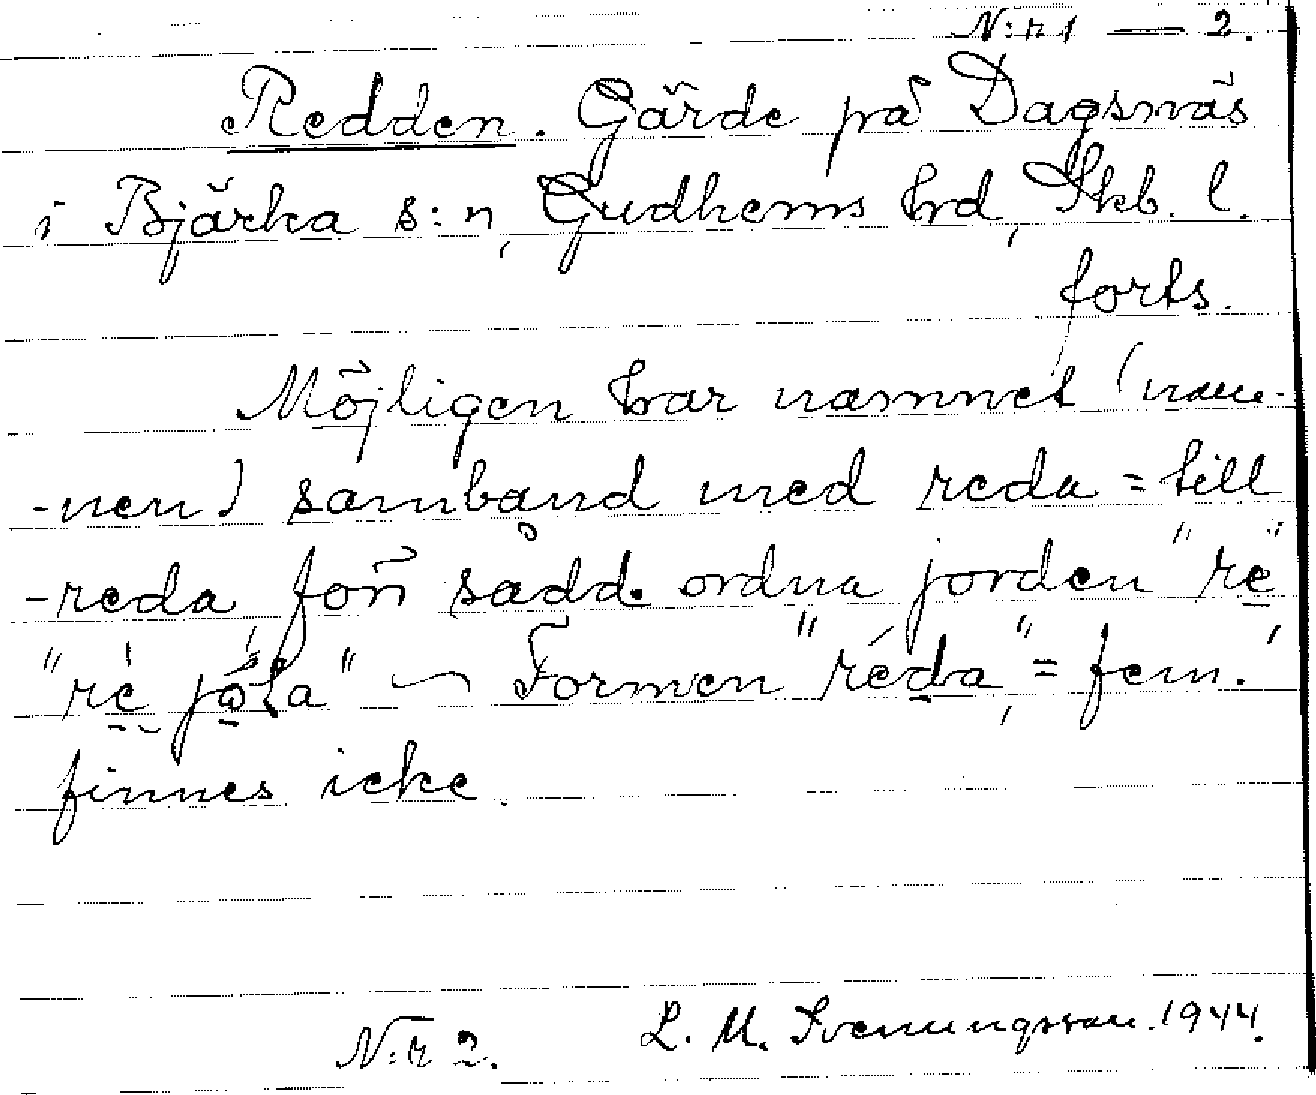 N:r 1 — 2.
Redden. Gärde på Dagsnäs
i Bjärka s:n, Gudhems hrd, Skb. l.
forts.
Möjligen har namnet (nam-
-nen) samband med reda = till
-reda, för sådd. ordna jorden "rë"
"rè jóla" — Formen "réda", = fem.
finnes icke.
N:r 2. L. M. Svenungsson. 1944.